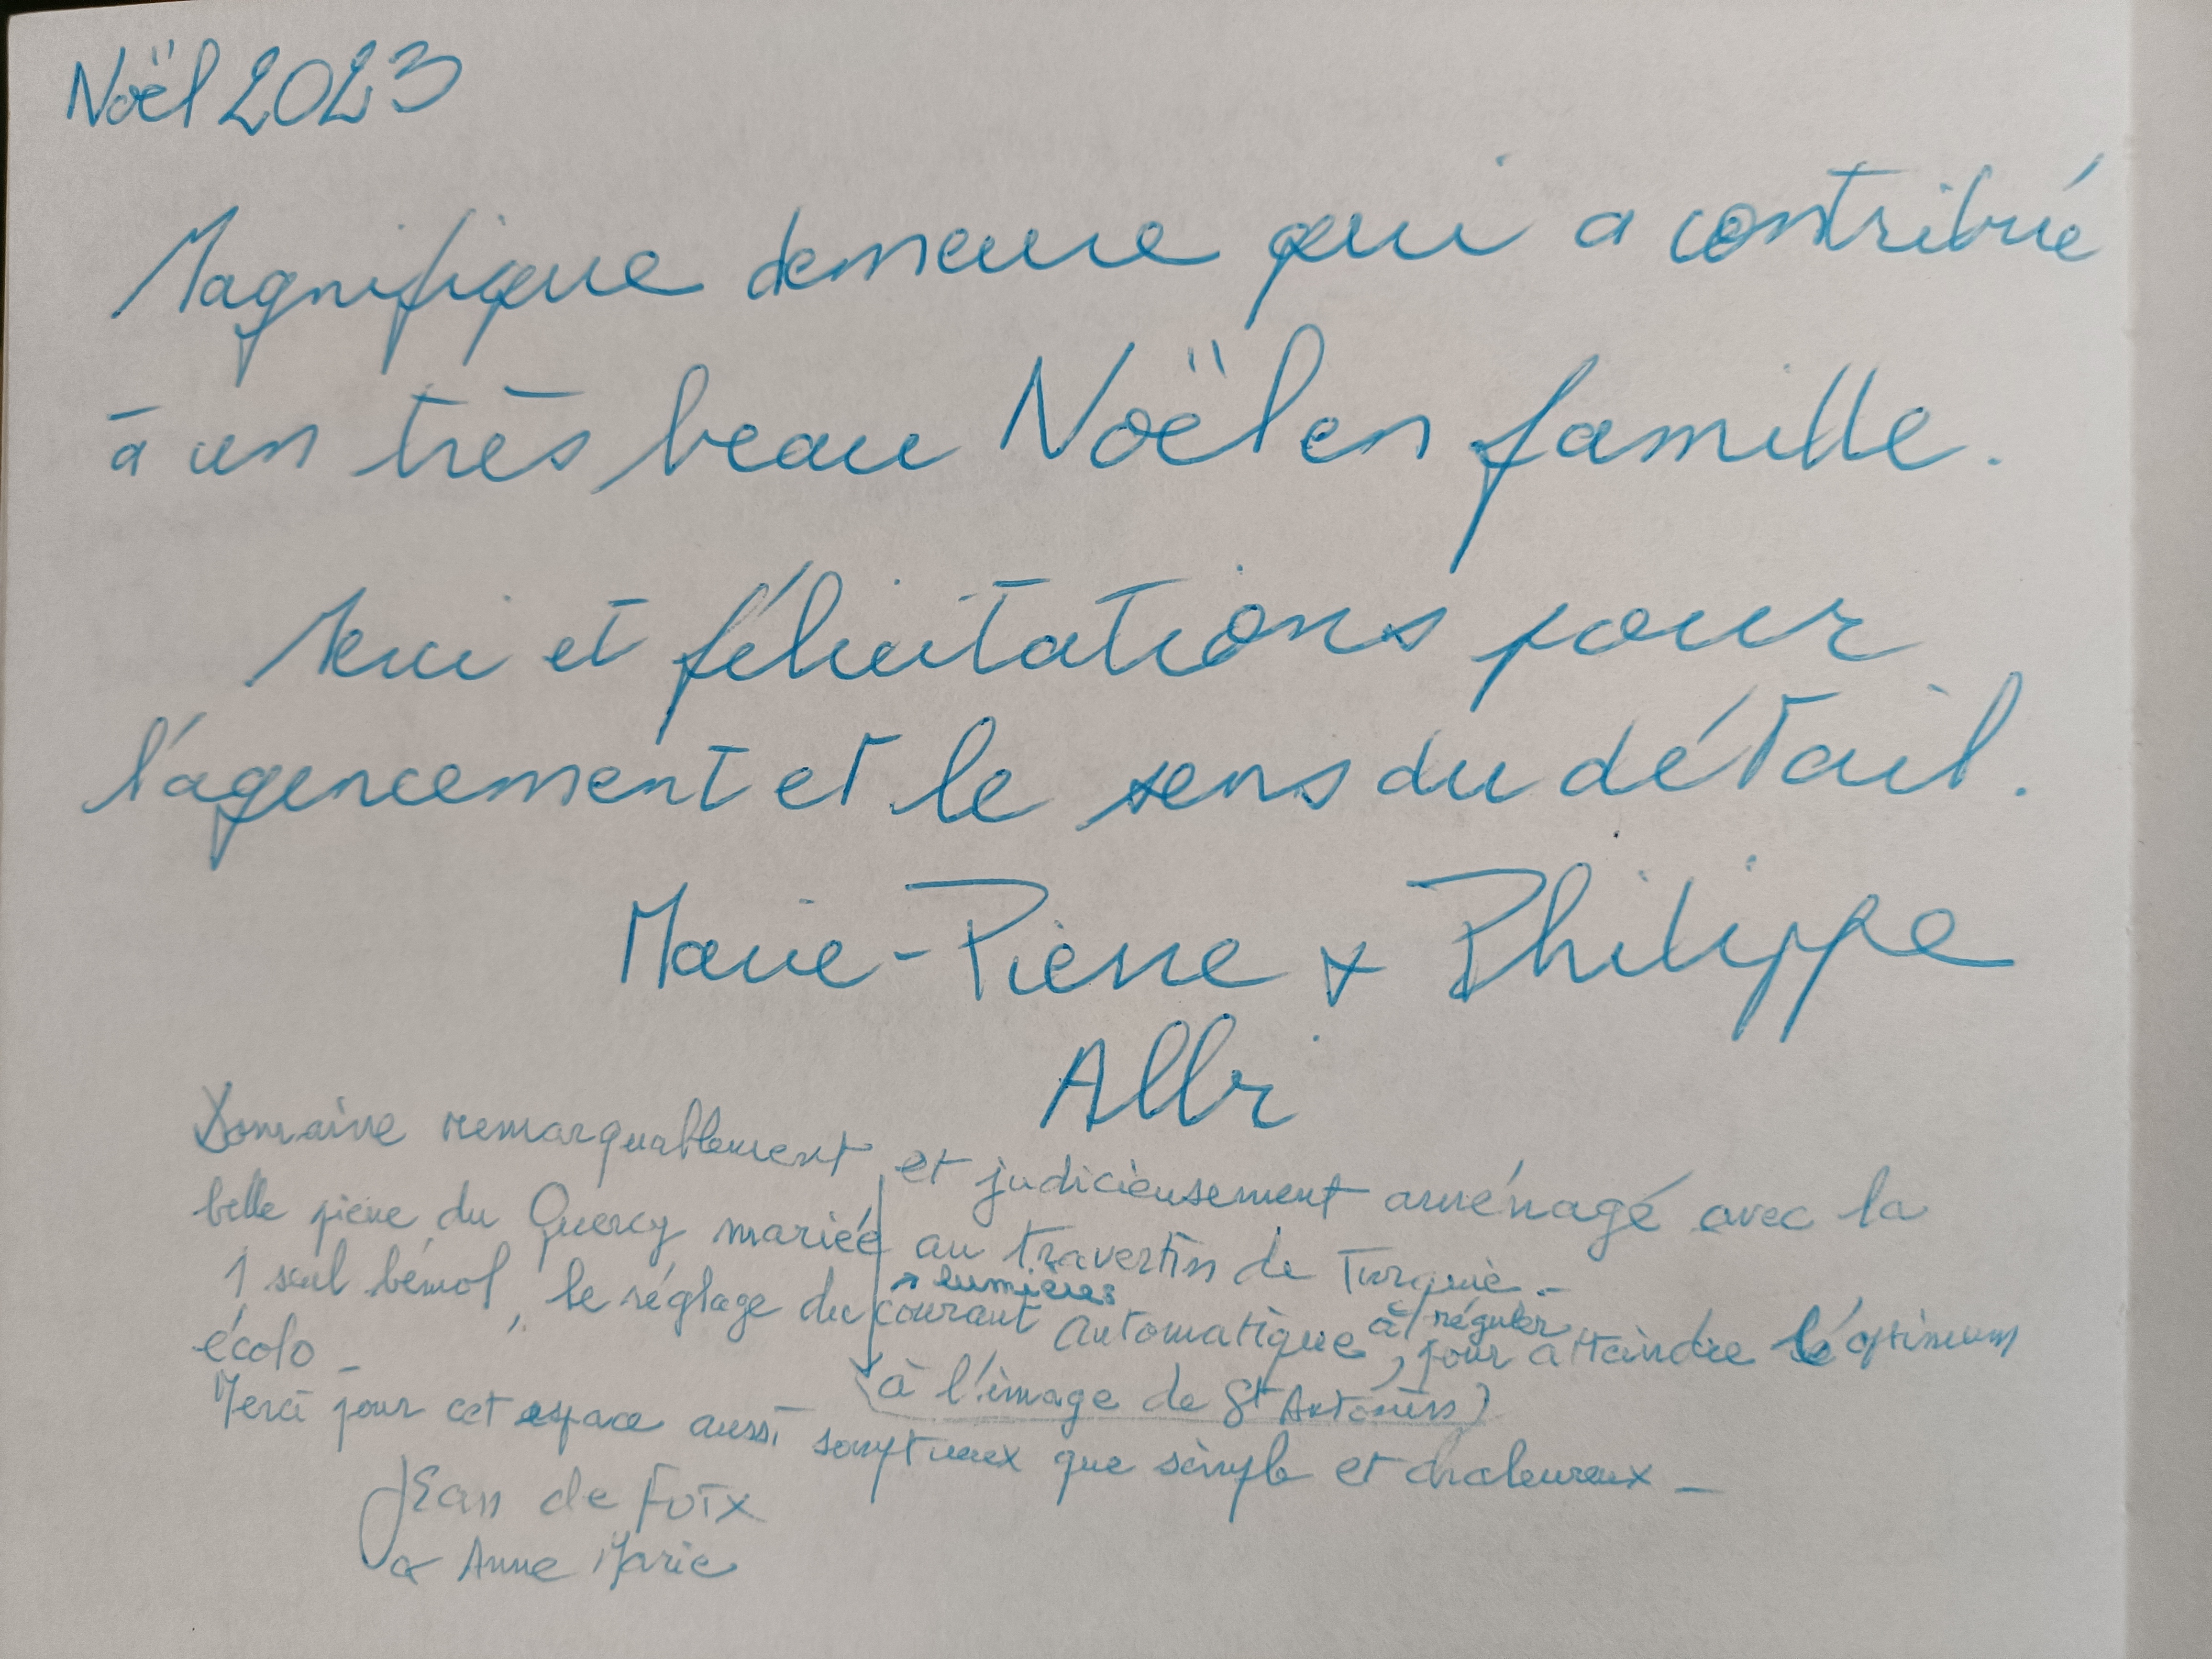 Noël 2023
Magnifique demeure qui a contribué
à un très beau Noël en famille.
Merci et félicitations pour
l'agencement et le sens du détail.
Marie-Pierre & Philippe
Albi
Domaine remarquablement et judicieusement aménagé avec la
belle pierre du Quercy mariée au travertin de Turquie.-
lumières
1 seul bémol, le réglage du courant automatique à réguler, pour atteindre l'optimum
écolo -
(à l'image de St Antonin)
Merci pour cet espace aussi somptueux que simple et chaleureux -
Jean de Foix
& Anne Marie